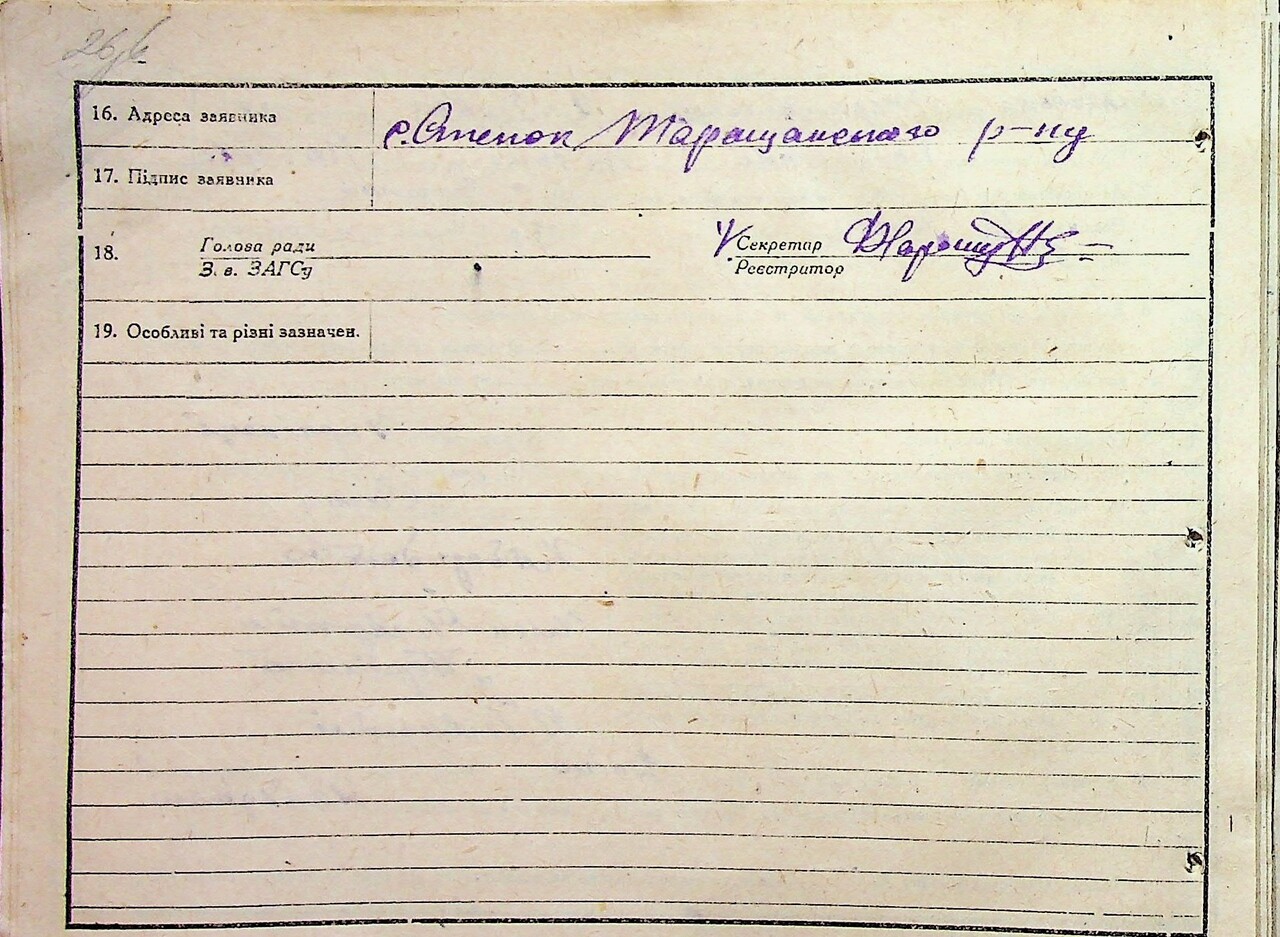 16. Адреса заявника с. Степок Таращанського р-ну
17. Підпис заявника
18. Голова ради Секретар
З. в. ЗАГСу Реєстритор
19. Особливі та різні зазначен.